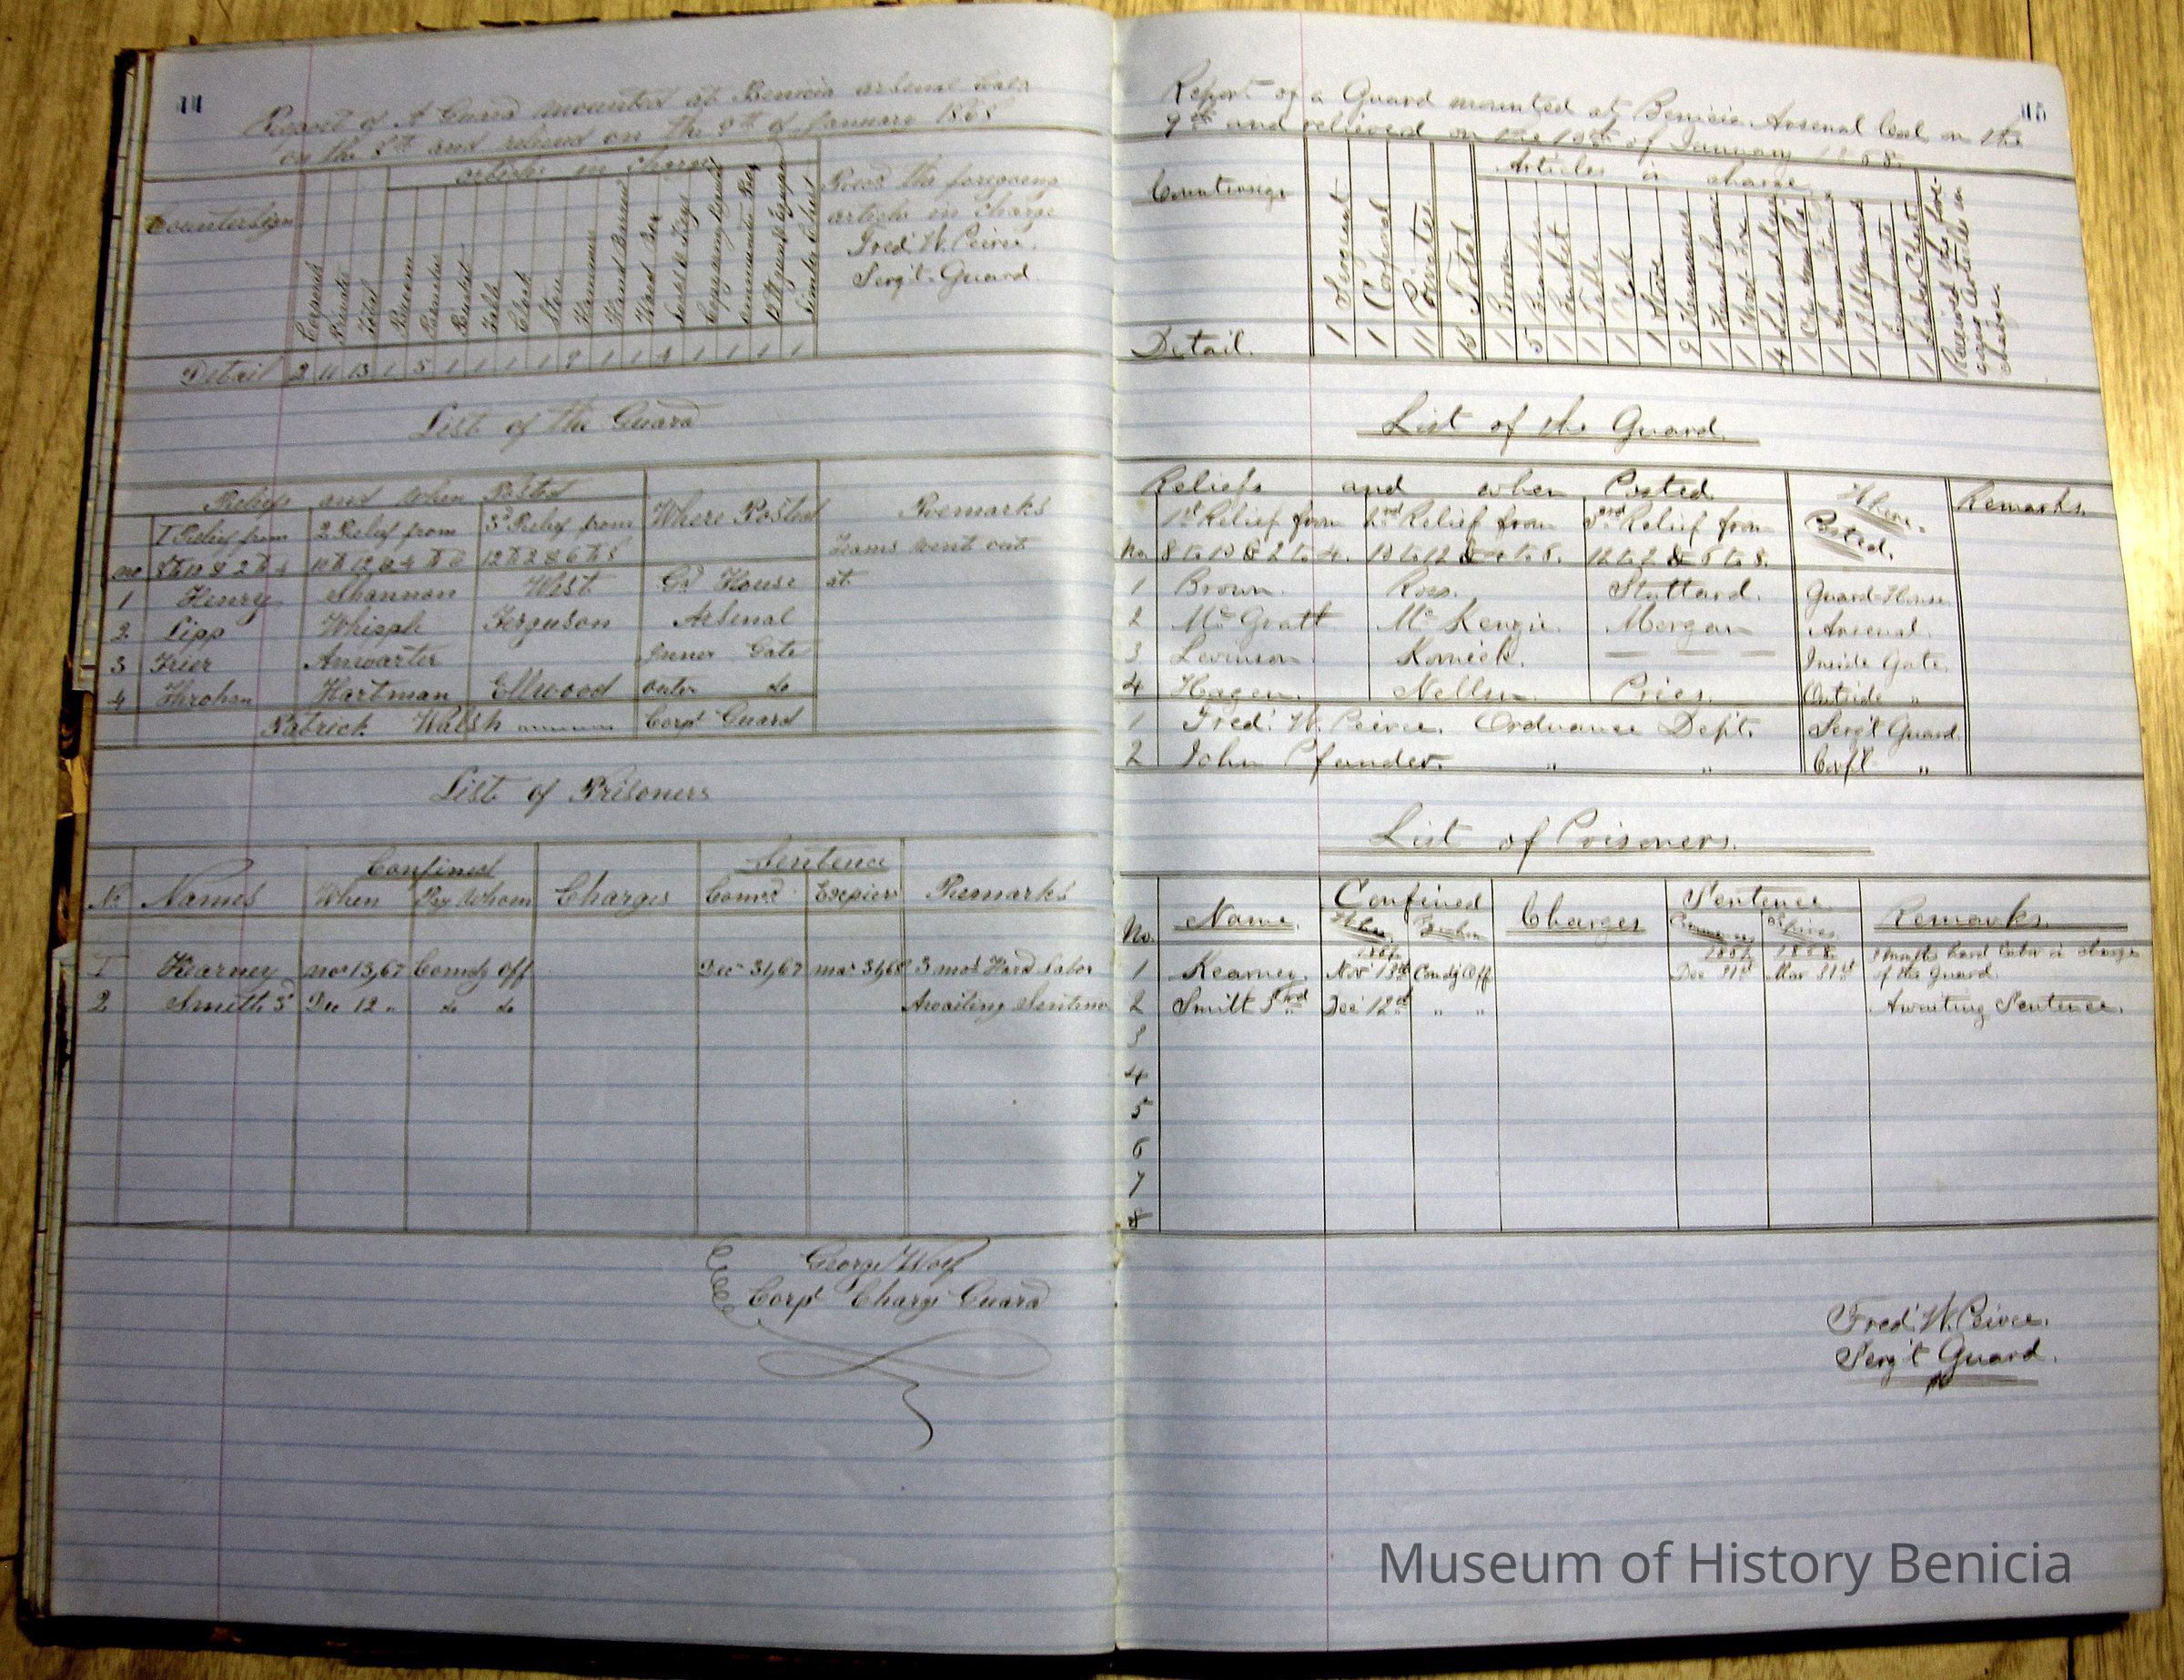 44
Report of A Guard mounted at Benicia Arsenal Cala
on the 8th and relieved on the 9th of January 1868
Articles in charge
Countersign
Corporal
Private
Total
Broom
Benches
Bucket
Table
Clock
Stove
Hammer
Hand Barrow
Wood Box
Locks & Keys
1
Limber Chest
Recd the foregoing
articles in charge
Fred. W. Peirce.
Serg't. Guard.
Detail 2 11 13 1 5 1 1 1 1 9 1 1 4 1 1 1 1
List of the Guard
Reliefs and When Posted
Where Posted
Remarks
No
1 Relief from
2 Relief from
3d Relief from
8 to 10 & 2 to 4
10 to 12 & 4 to 6
12 to 2 & 6 to 8
Teams went out
at
1 Henry Shannon West Gd House
2 Lipp Whipple Ferguson Arsenal
3 Frier Anwarter Inner Gate
4 Hartman Ellwood outer do
Patrick Walsh Corpl Guard
List of Prisoners
No Names
Confined
When By Whom
Charges
Sentence
Comed Expires
Remarks
1 Kearney Nov 13,67 Comdg Off Dec 31,67 Mar 31,68 3 mos Hard Labor
2 Smith 3d Dec 12 " do do Awaiting Sentence
George Wolf
Corpl Charge Guard
45
Report of a Guard mounted at Benicia Arsenal Cal. on the
9th and relieved on the 10th of January 1868.
Articles in charge
Countersign
Sergeant
Corporal
Privates
Total
Broom
Benches
Bucket
Table
Clock
Stove
Hammers
Hand Barrow
Wood Box
Limber Chest
Received the fore-
going Articles in
charge
Detail. 1 1 11 13 1 5 1 1 1 1 9 1 1 4 1 1 1 1
List of the Guard.
Reliefs and when Posted
Where
Posted.
Remarks.
No.
1st Relief from
2nd Relief from
3rd Relief from
8 to 10 & 2 to 4.
10 to 12 & 4 to 6.
12 to 2 & 6 to 8.
1 Brown. Ross. Stuttard. Guard House
2 McGratt. McKenzie. Morgan Arsenal.
3 Levinson. Kornick. Inside Gate.
4 Hagen. Nellen. Pries. Outside "
1 Fred. W. Peirce. Ordnance Dep't. Serg't Guard.
2 John Pfander. " " Corp'l "
List of Prisoners.
No. Name.
Confined
When By whom
Charges
Sentence.
Commences Expires
Remarks.
1867 1867 1868
1 Kearney. Nov 13th Comdg Off Dec 31st Mar 31st 3 months hard labor in charge
of the Guard.
2 Smith 3rd Dec 12th " " Awaiting Sentence.
3
4
5
6
7
8
Fred. W. Peirce.
Serg't Guard.
Museum of History Benicia